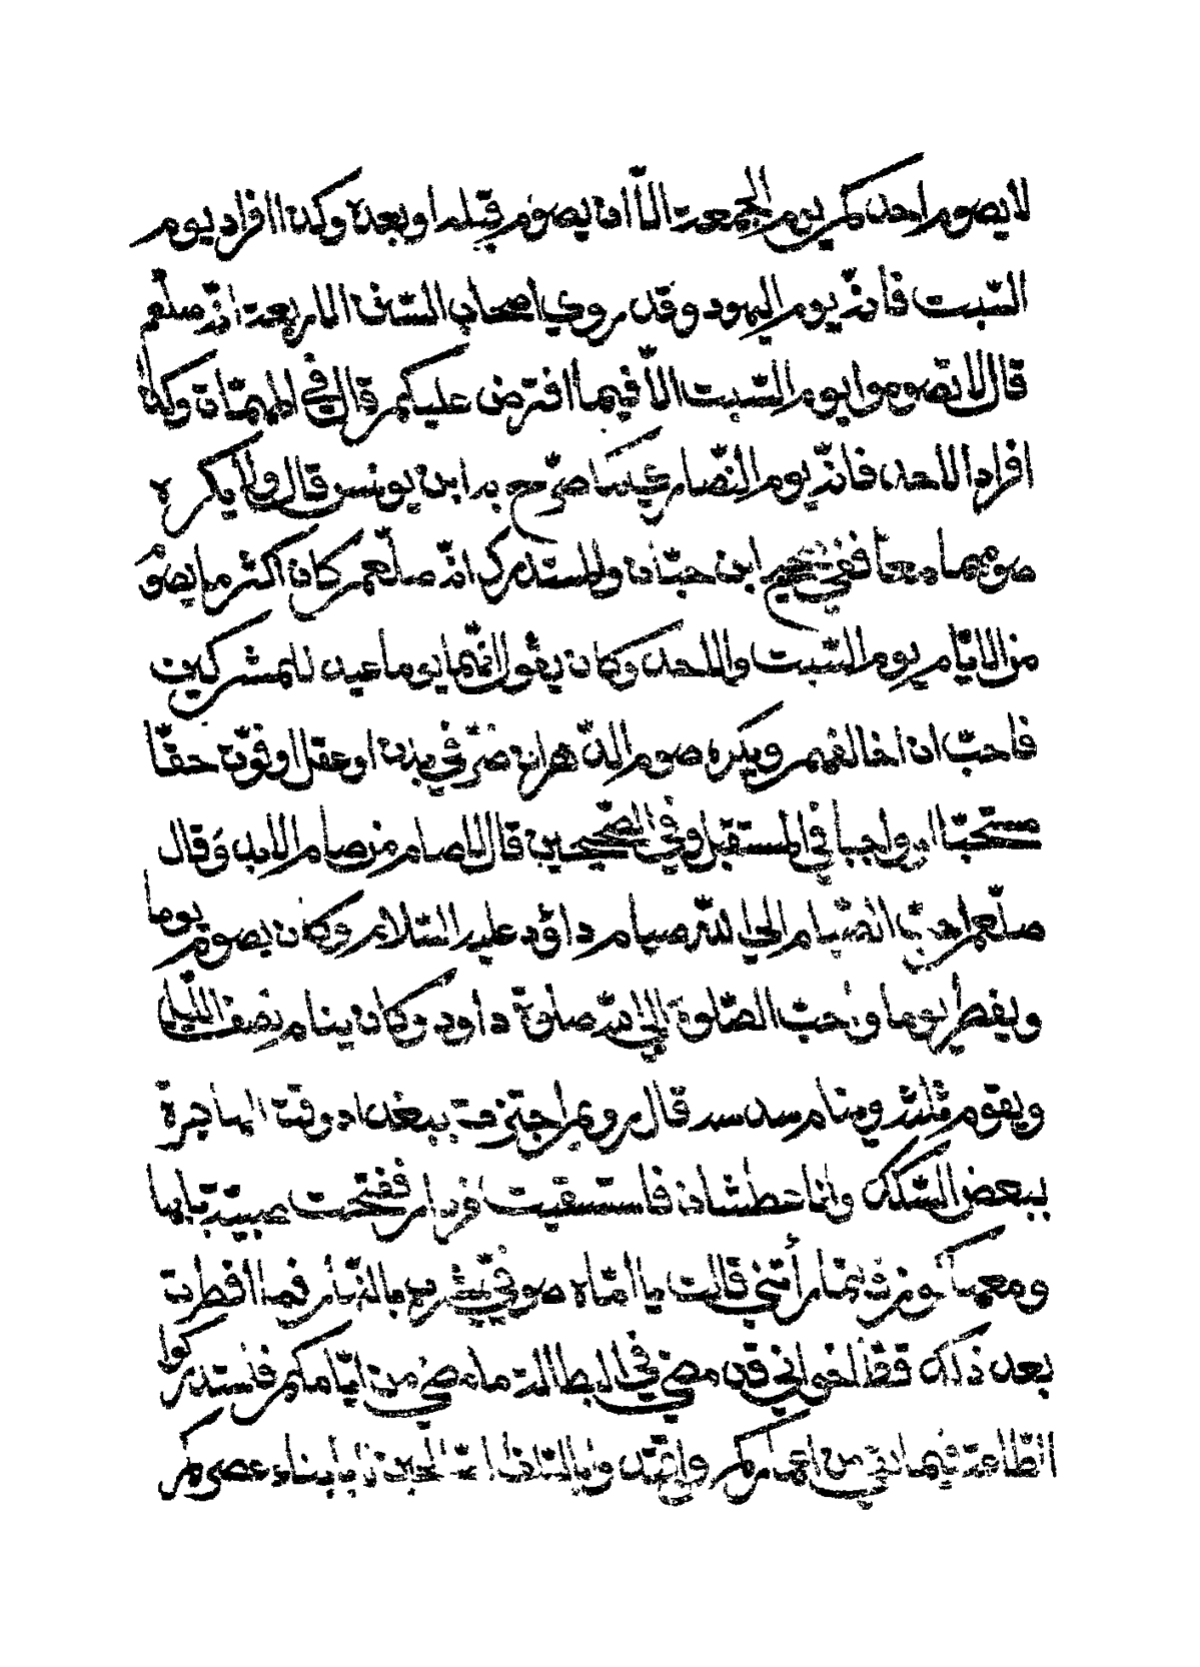 لا يصوم احدكم يوم الجمعة الّا ان يصوم قبله او بعده وكذا افراد يوم
السّبت فانّه يوم اليهود وقد روي اصحاب السّنن الاربعة انّه صلّعم
قال لا تصوموا يوم السّبت الّا فيما افترض عليكم قال في المهمّات وكذا
افراد الاحد فانّه يوم النّصاري كما صرّح به ابن يونس قال ولا يكره
صومهما معا ففي صحيح ابن حبّان والمستدرك انّه صلّعم كان اكثر ما يصوم
من الايّام يوم السّبت والاحد وكان يقول انّهما يوما عيد للمشركين
فاحبّ ان اخالفهم ويكره صوم الدّهر ان ضرّ في بدن او عقل او فوّت حقّا
مستحبّا او واجبا في المستقبل وفي الصّحيحين قال لا صام من صام الابد وقال
صلّعم احبّ الصّيام الي اللّه صيام داود عليه السّلام وكان يصوم يوما
ويفطر يوما واحبّ الصّلوة الي اللّه صلوة داود وكان ينام نصف اللّيل
ويقوم ثلثه وينام سدسه قال رويم اجتزت ببغداد وقت الهاجرة
ببعض السّكك وانا عطشان فاستسقيت من دار ففتحت صبيّة بابها
ومعها كوز فلمّا رأتني قالت يا امّاه صوفيّ يشرب بالنّهار فما افطرت
بعد ذلك قطّ اخواني قد مضي في البطالة ما مضي من ايّامكم فاستدركوا
الطّاعة فيما بقي من اعماركم